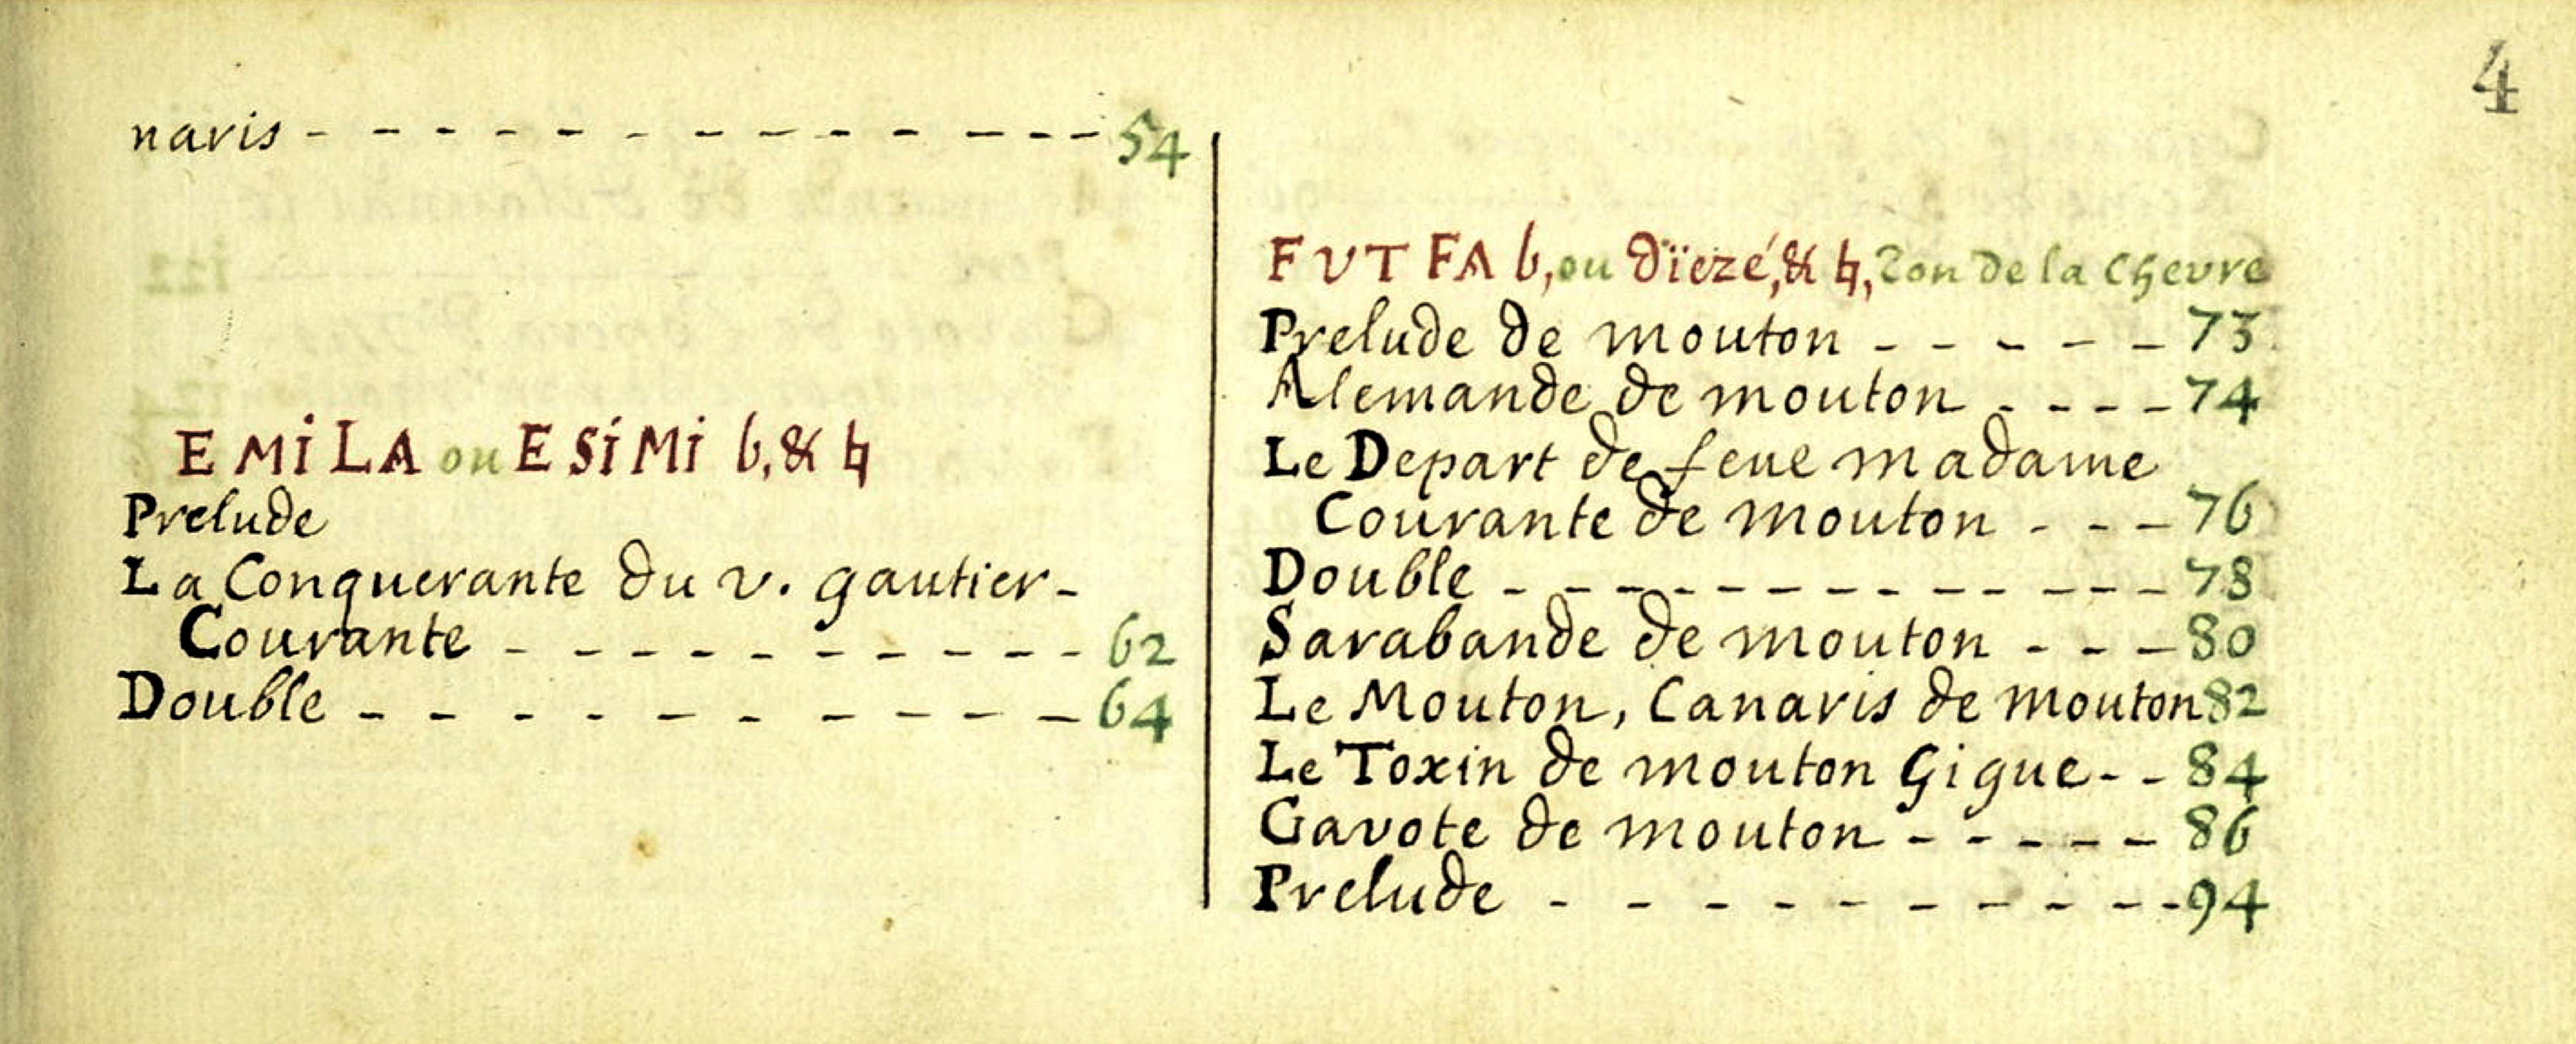 4
naris - - - - - - - - - - - - - - 54
E MI LA ou E SI MI b, & ♮
Prelude
La Conquerante du v. gautier -
Courante - - - - - - - - - - - 62
Double - - - - - - - - - - - 64
F VT FA b, ou dïezé, & ♮, Ton de la Chevre
Prelude de mouton - - - - - 73
Alemande de mouton - - - - 74
Le Depart de feue madame
Courante de mouton - - - 76
Double - - - - - - - - - - - - 78
Sarabande de mouton - - - 80
Le Mouton, Canaris de mouton 82
Le Toxin de mouton Gigue - - 84
Gavote de mouton - - - - - 86
Prelude - - - - - - - - - - 94